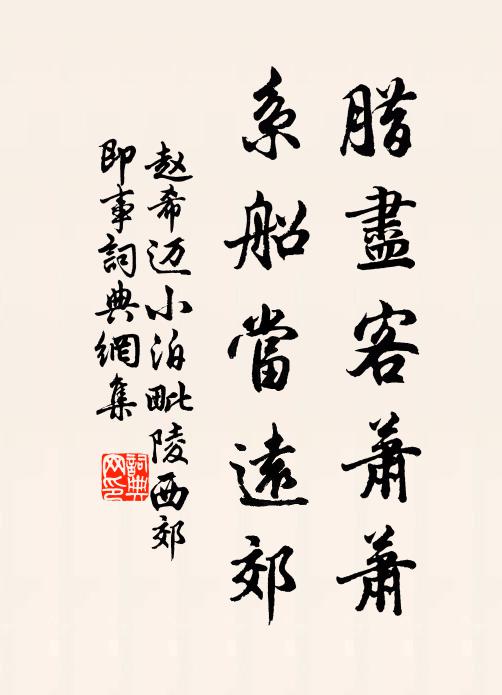 腊盡客蕭蕭
系船當遠郊
赵希迈小泊毗陵西郊
即事詞典網集
詞典网印